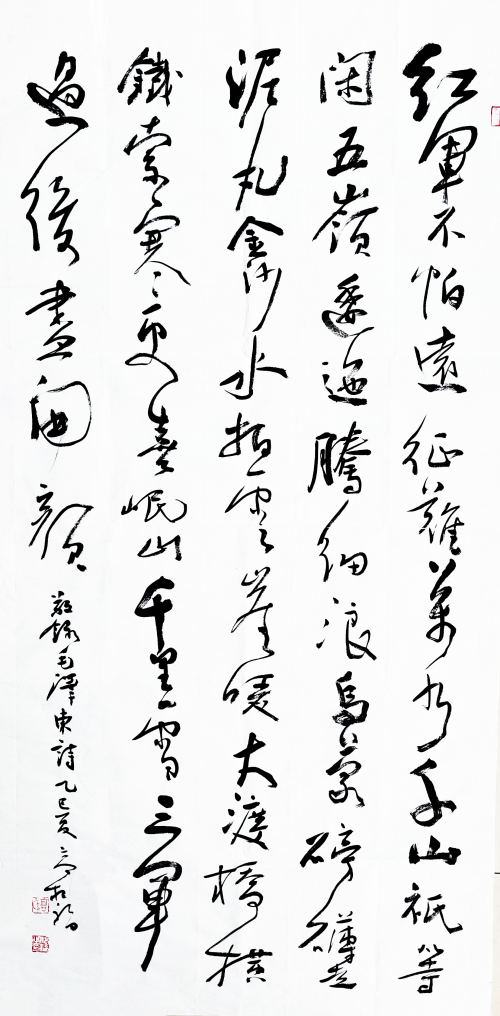 紅軍不怕遠征難萬水千山祇等
閑五嶺逶迤騰細浪烏蒙磅礴走
泥丸金沙水拍雲崖暖大渡橋橫
鐵索寒更喜岷山千里雪三軍
過後盡開顏
敬錄毛澤東詩乙巳夏